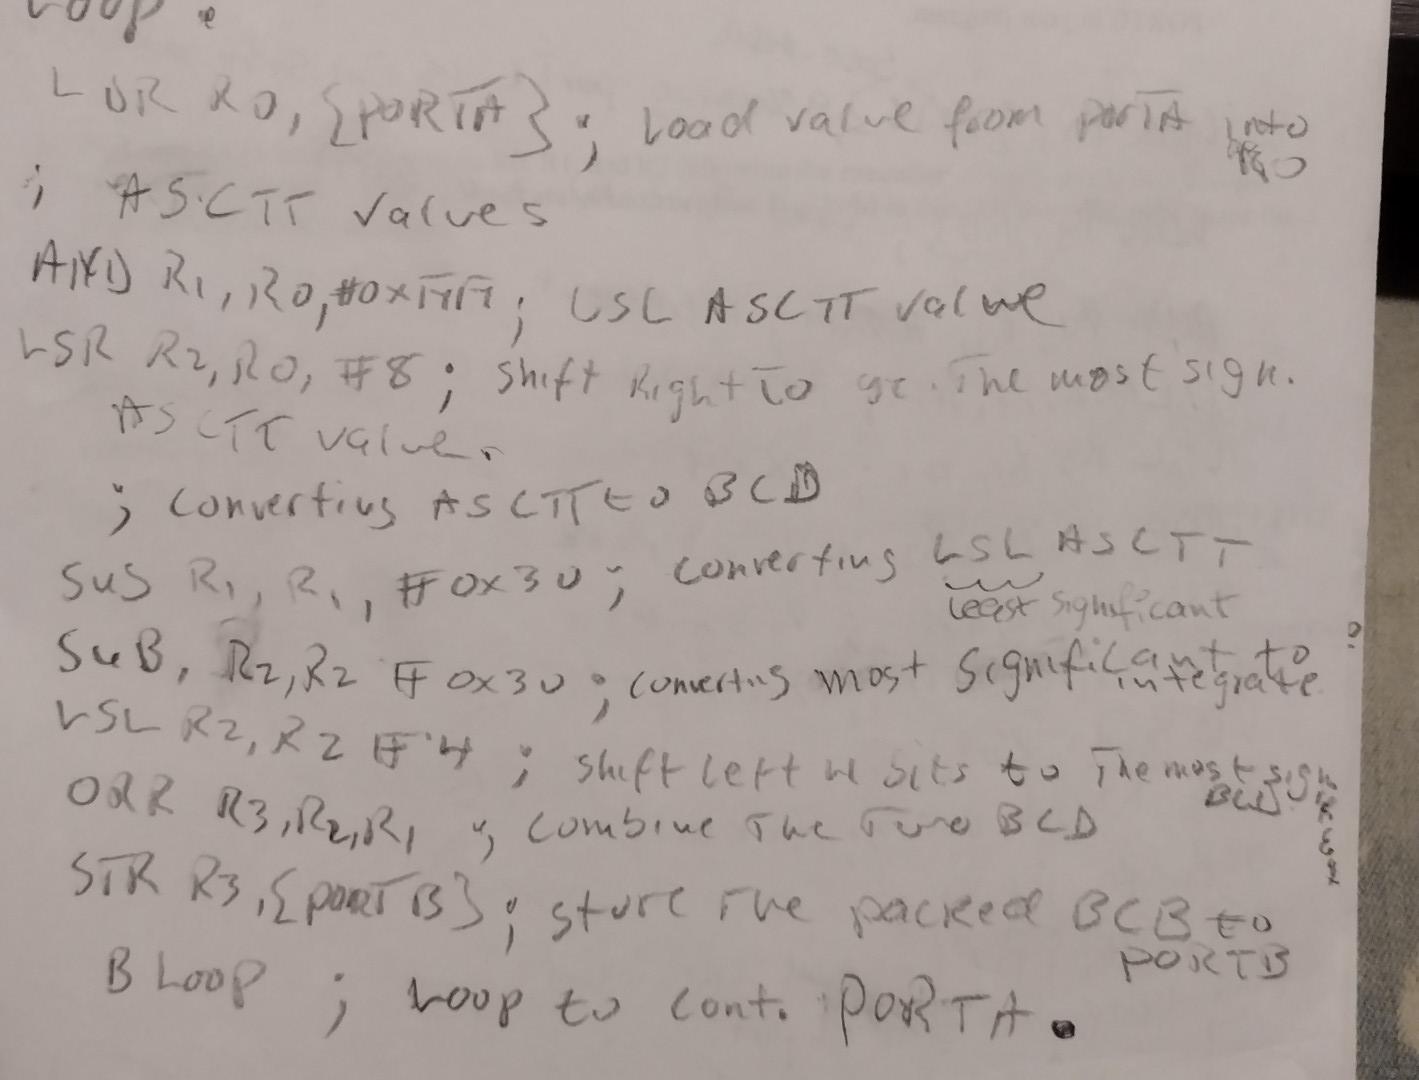 Loop:
LDR R0, {PORTA} ; Load value from PORTA into R0
; ASCII values
AND R1, R0, #0xFF ; LSL ASCII value
LSR R2, R0, #8 ; shift Right To The most sign.
ASCII value.
; converting ASCII to BCD
SUS R1, R1, #0x30 ; converting LSL ASCII
Least significant
SUB, R2, R2 #0x30 ; converting most significant to integrate
LSL R2, R2 #4 ; shift left 4 bits to The most sign BCD
ORR R3, R2, R1 ; combine The Two BCD
STR R3, {PORTB} ; store The packed BCB to PORTB
B Loop ; Loop to cont. PORTA.